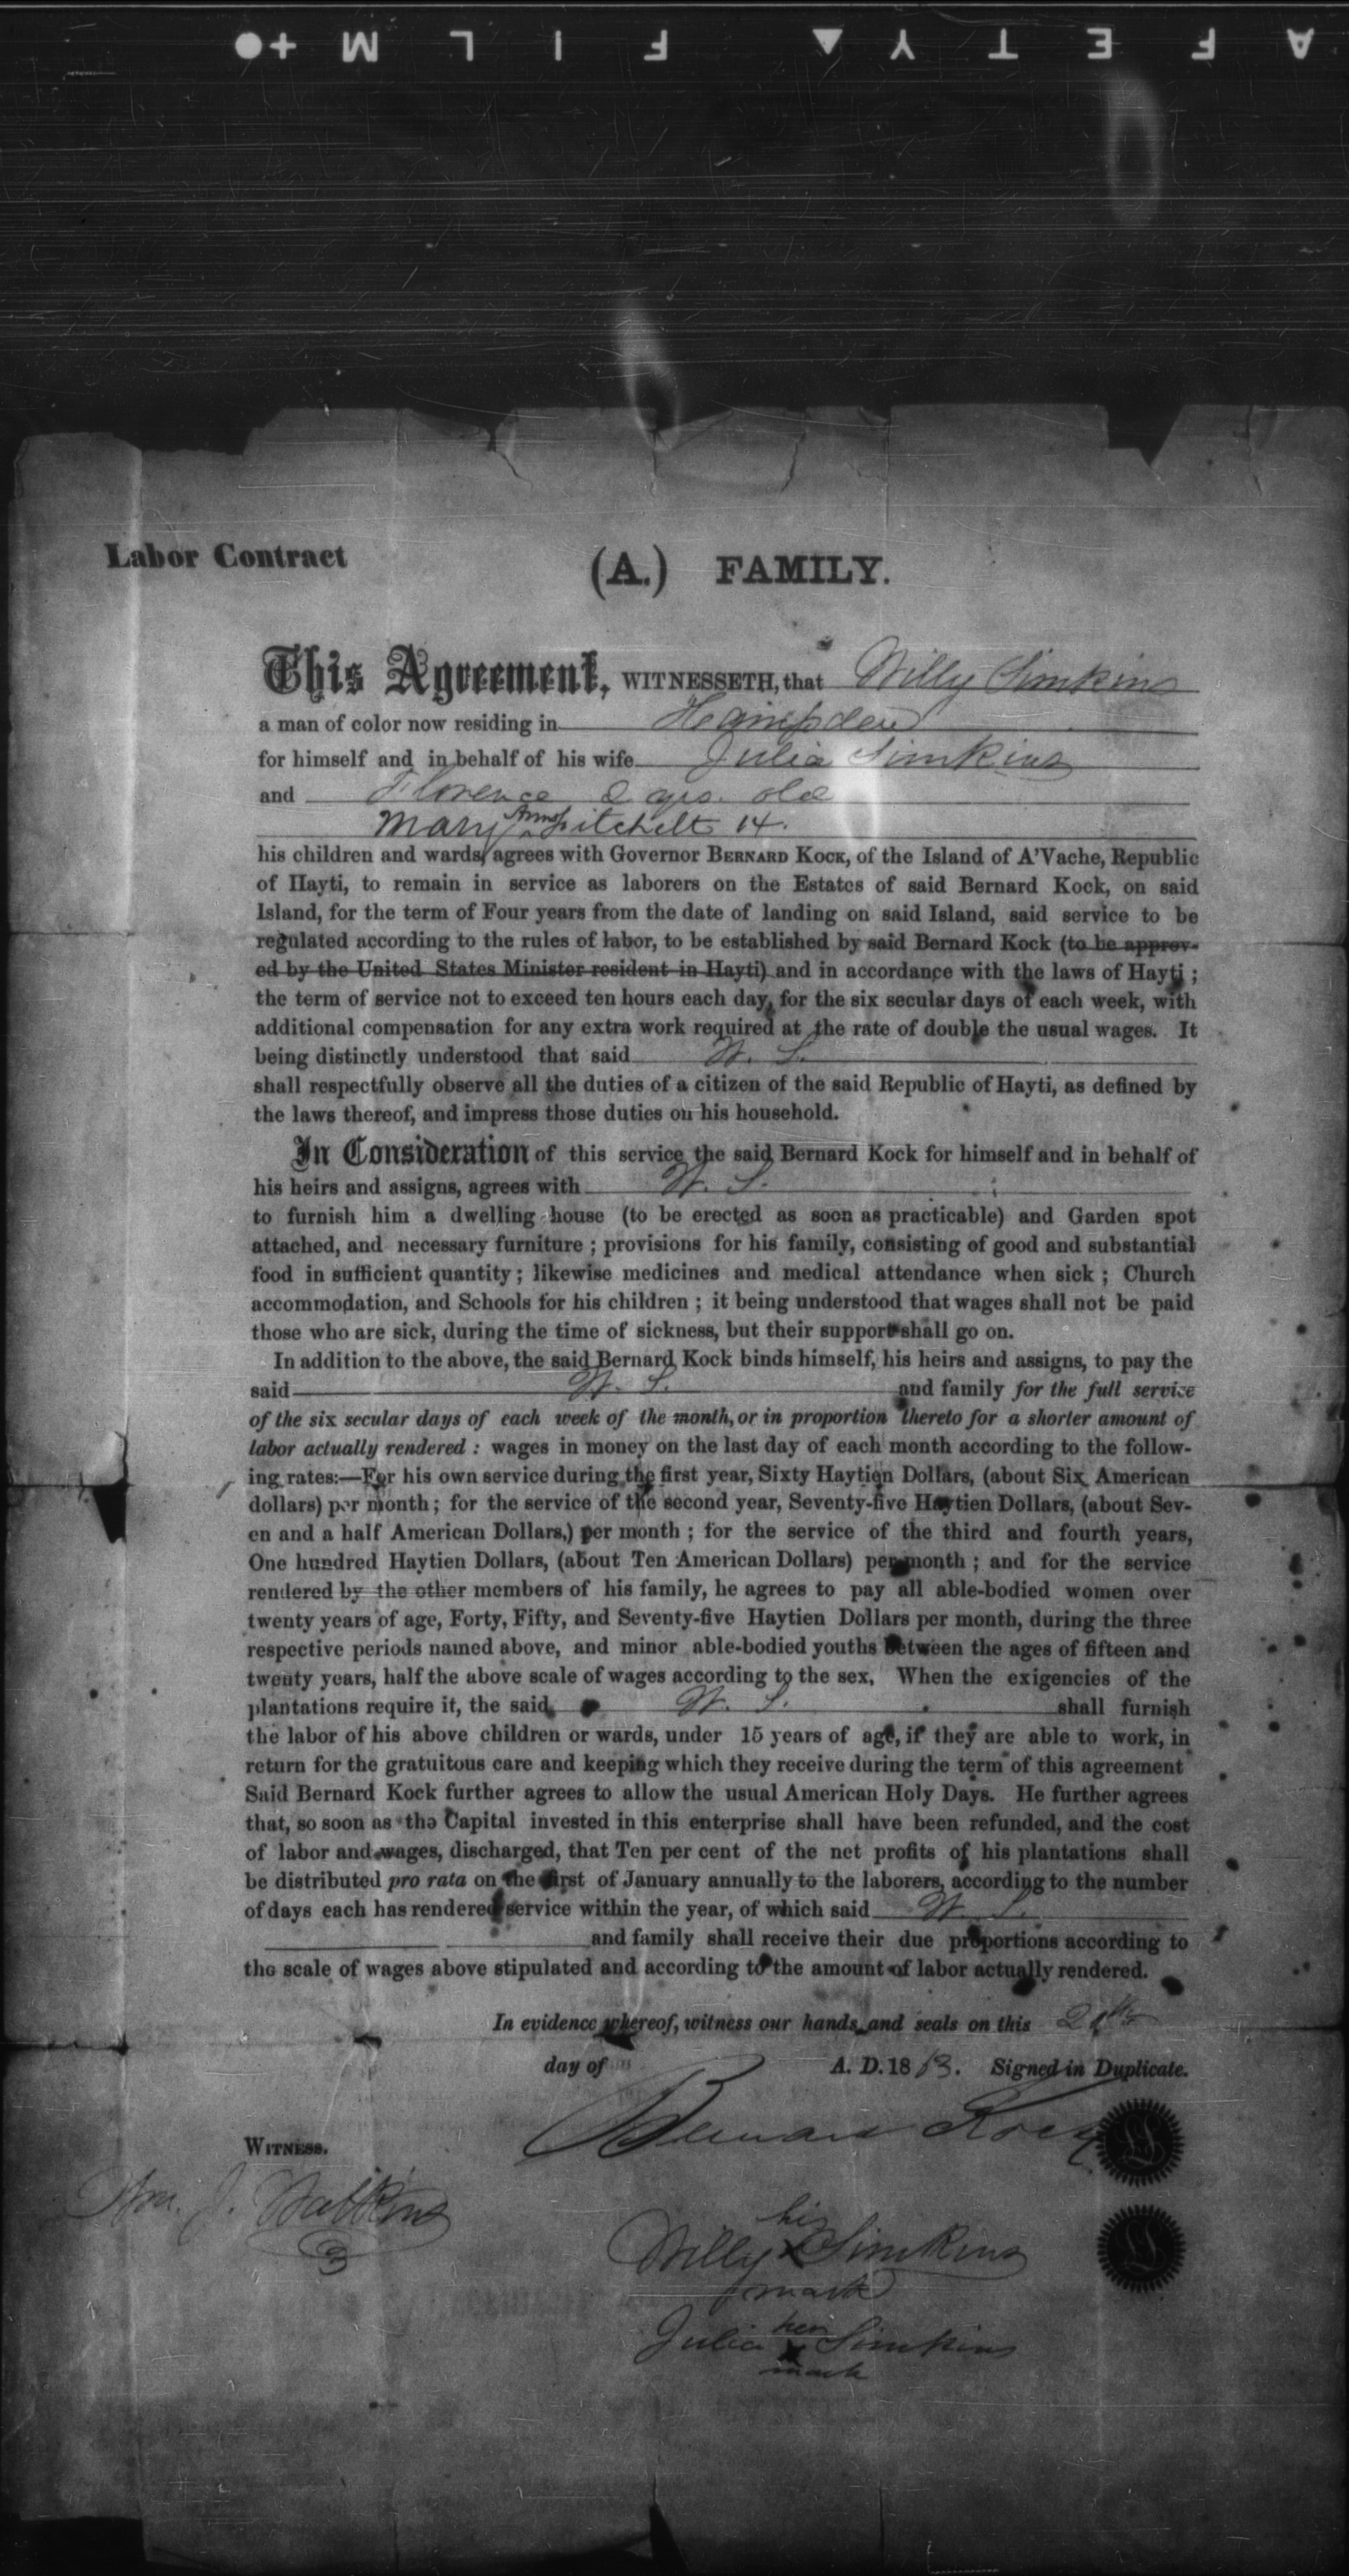 SAFETY ▲ FILM +●
Labor Contract
(A.) FAMILY.
This Agreement, WITNESSETH, that Willy Simkins
a man of color now residing in Hampden
for himself and in behalf of his wife Julia Simkins
and Florence 2 yrs. old
Mary Ann Pitchelt 14.
his children and wards, agrees with Governor BERNARD KOCK, of the Island of A'Vache, Republic
of Hayti, to remain in service as laborers on the Estates of said Bernard Kock, on said
Island, for the term of Four years from the date of landing on said Island, said service to be
regulated according to the rules of labor, to be established by said Bernard Kock (to be approv-
ed by the United States Minister resident in Hayti) and in accordance with the laws of Hayti ;
the term of service not to exceed ten hours each day, for the six secular days of each week, with
additional compensation for any extra work required at the rate of double the usual wages. It
being distinctly understood that said W. S.
shall respectfully observe all the duties of a citizen of the said Republic of Hayti, as defined by
the laws thereof, and impress those duties on his household.
In Consideration of this service the said Bernard Kock for himself and in behalf of
his heirs and assigns, agrees with W. S.
to furnish him a dwelling house (to be erected as soon as practicable) and Garden spot
attached, and necessary furniture ; provisions for his family, consisting of good and substantial
food in sufficient quantity ; likewise medicines and medical attendance when sick ; Church
accommodation, and Schools for his children ; it being understood that wages shall not be paid
those who are sick, during the time of sickness, but their support shall go on.
In addition to the above, the said Bernard Kock binds himself, his heirs and assigns, to pay the
said W. S. and family for the full service
of the six secular days of each week of the month, or in proportion thereto for a shorter amount of
labor actually rendered : wages in money on the last day of each month according to the follow-
ing rates:—For his own service during the first year, Sixty Haytien Dollars, (about Six American
dollars) per month ; for the service of the second year, Seventy-five Haytien Dollars, (about Sev-
en and a half American Dollars,) per month ; for the service of the third and fourth years,
One hundred Haytien Dollars, (about Ten American Dollars) per month ; and for the service
rendered by the other members of his family, he agrees to pay all able-bodied women over
twenty years of age, Forty, Fifty, and Seventy-five Haytien Dollars per month, during the three
respective periods named above, and minor able-bodied youths between the ages of fifteen and
twenty years, half the above scale of wages according to the sex. When the exigencies of the
plantations require it, the said W. S. shall furnish
the labor of his above children or wards, under 15 years of age, if they are able to work, in
return for the gratuitous care and keeping which they receive during the term of this agreement
Said Bernard Kock further agrees to allow the usual American Holy Days. He further agrees
that, so soon as the Capital invested in this enterprise shall have been refunded, and the cost
of labor and wages, discharged, that Ten per cent of the net profits of his plantations shall
be distributed pro rata on the first of January annually to the laborers, according to the number
of days each has rendered service within the year, of which said W. S.
and family shall receive their due proportions according to
the scale of wages above stipulated and according to the amount of labor actually rendered.
In evidence whereof, witness our hands and seals on this
day of A. D. 1863. Signed in Duplicate.
Bernard Kock
WITNESS.
Wm. J. Watkins
his
Willy X Simkins
mark
her
Julia X Simkins
mark